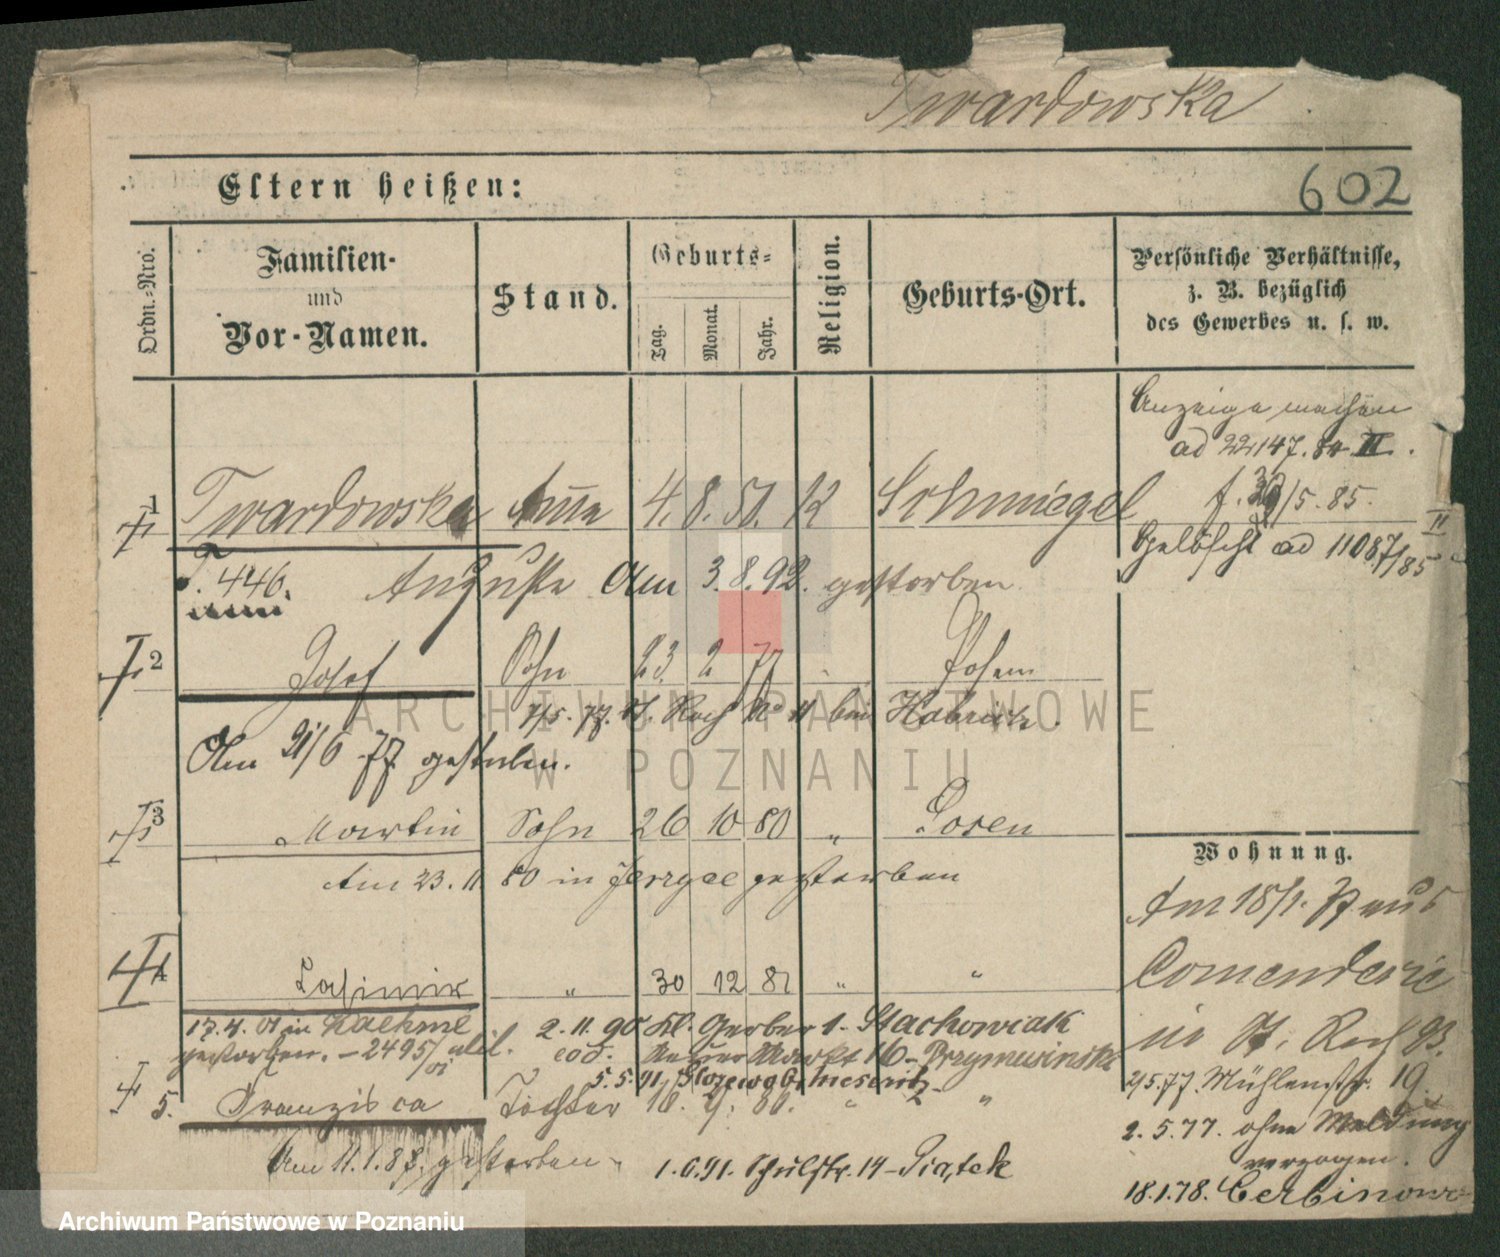 Twardowska
Eltern heißen:
602
Ordn.-Nro.
Familien-
und
Vor-Namen.
Stand.
Geburts-
Tag.
Monat.
Jahr.
Religion.
Geburts-Ort.
Persönliche Verhältnisse,
z. B. bezüglich
des Gewerbes u. s. w.
Anzeige machen
ad 22147. 84 II.
1 Twardowska Anna 4. 8. 51. K Schmiegel
f. 30/5. 85. II
Gelöscht ad 11087/85
T. 446.
Auguste Am 3. 8. 92. gestorben
2 Josef Sohn 23 2 77 Posen
7/5. 77. St. Roch No 11 bei
Am 21/6 77 gestorben.
3 Martin Sohn 26 10 80 " Posen
Am 23. 11 80 in Jerzyce gestorben
Wohnung.
Am 18/1. 77 aus
Comenderie
in St. Roch
4 Casimir " 30 12 81 " "
17. 4. 01 in Kaehme
gestorben. - 2495/01
2. 11. 90 Kl. Gerber 1. Stachowiak
eod. Neuer Markt 16 - Przymusinska
5. 5. 91
2/5. 77. Mühlenstr. 19.
5. Franzisca Tochter 10. 9. 86. " "
2. 5. 77. ohne Meldung
verzogen.
Am 11. 1. 87. gestorben
1. 6. 91. Schulstr. 14 - Piątek
18. 1. 78. Cerbinowo
ARCHIWUM PAŃSTWOWE
W POZNANIU
Archiwum Państwowe w Poznaniu